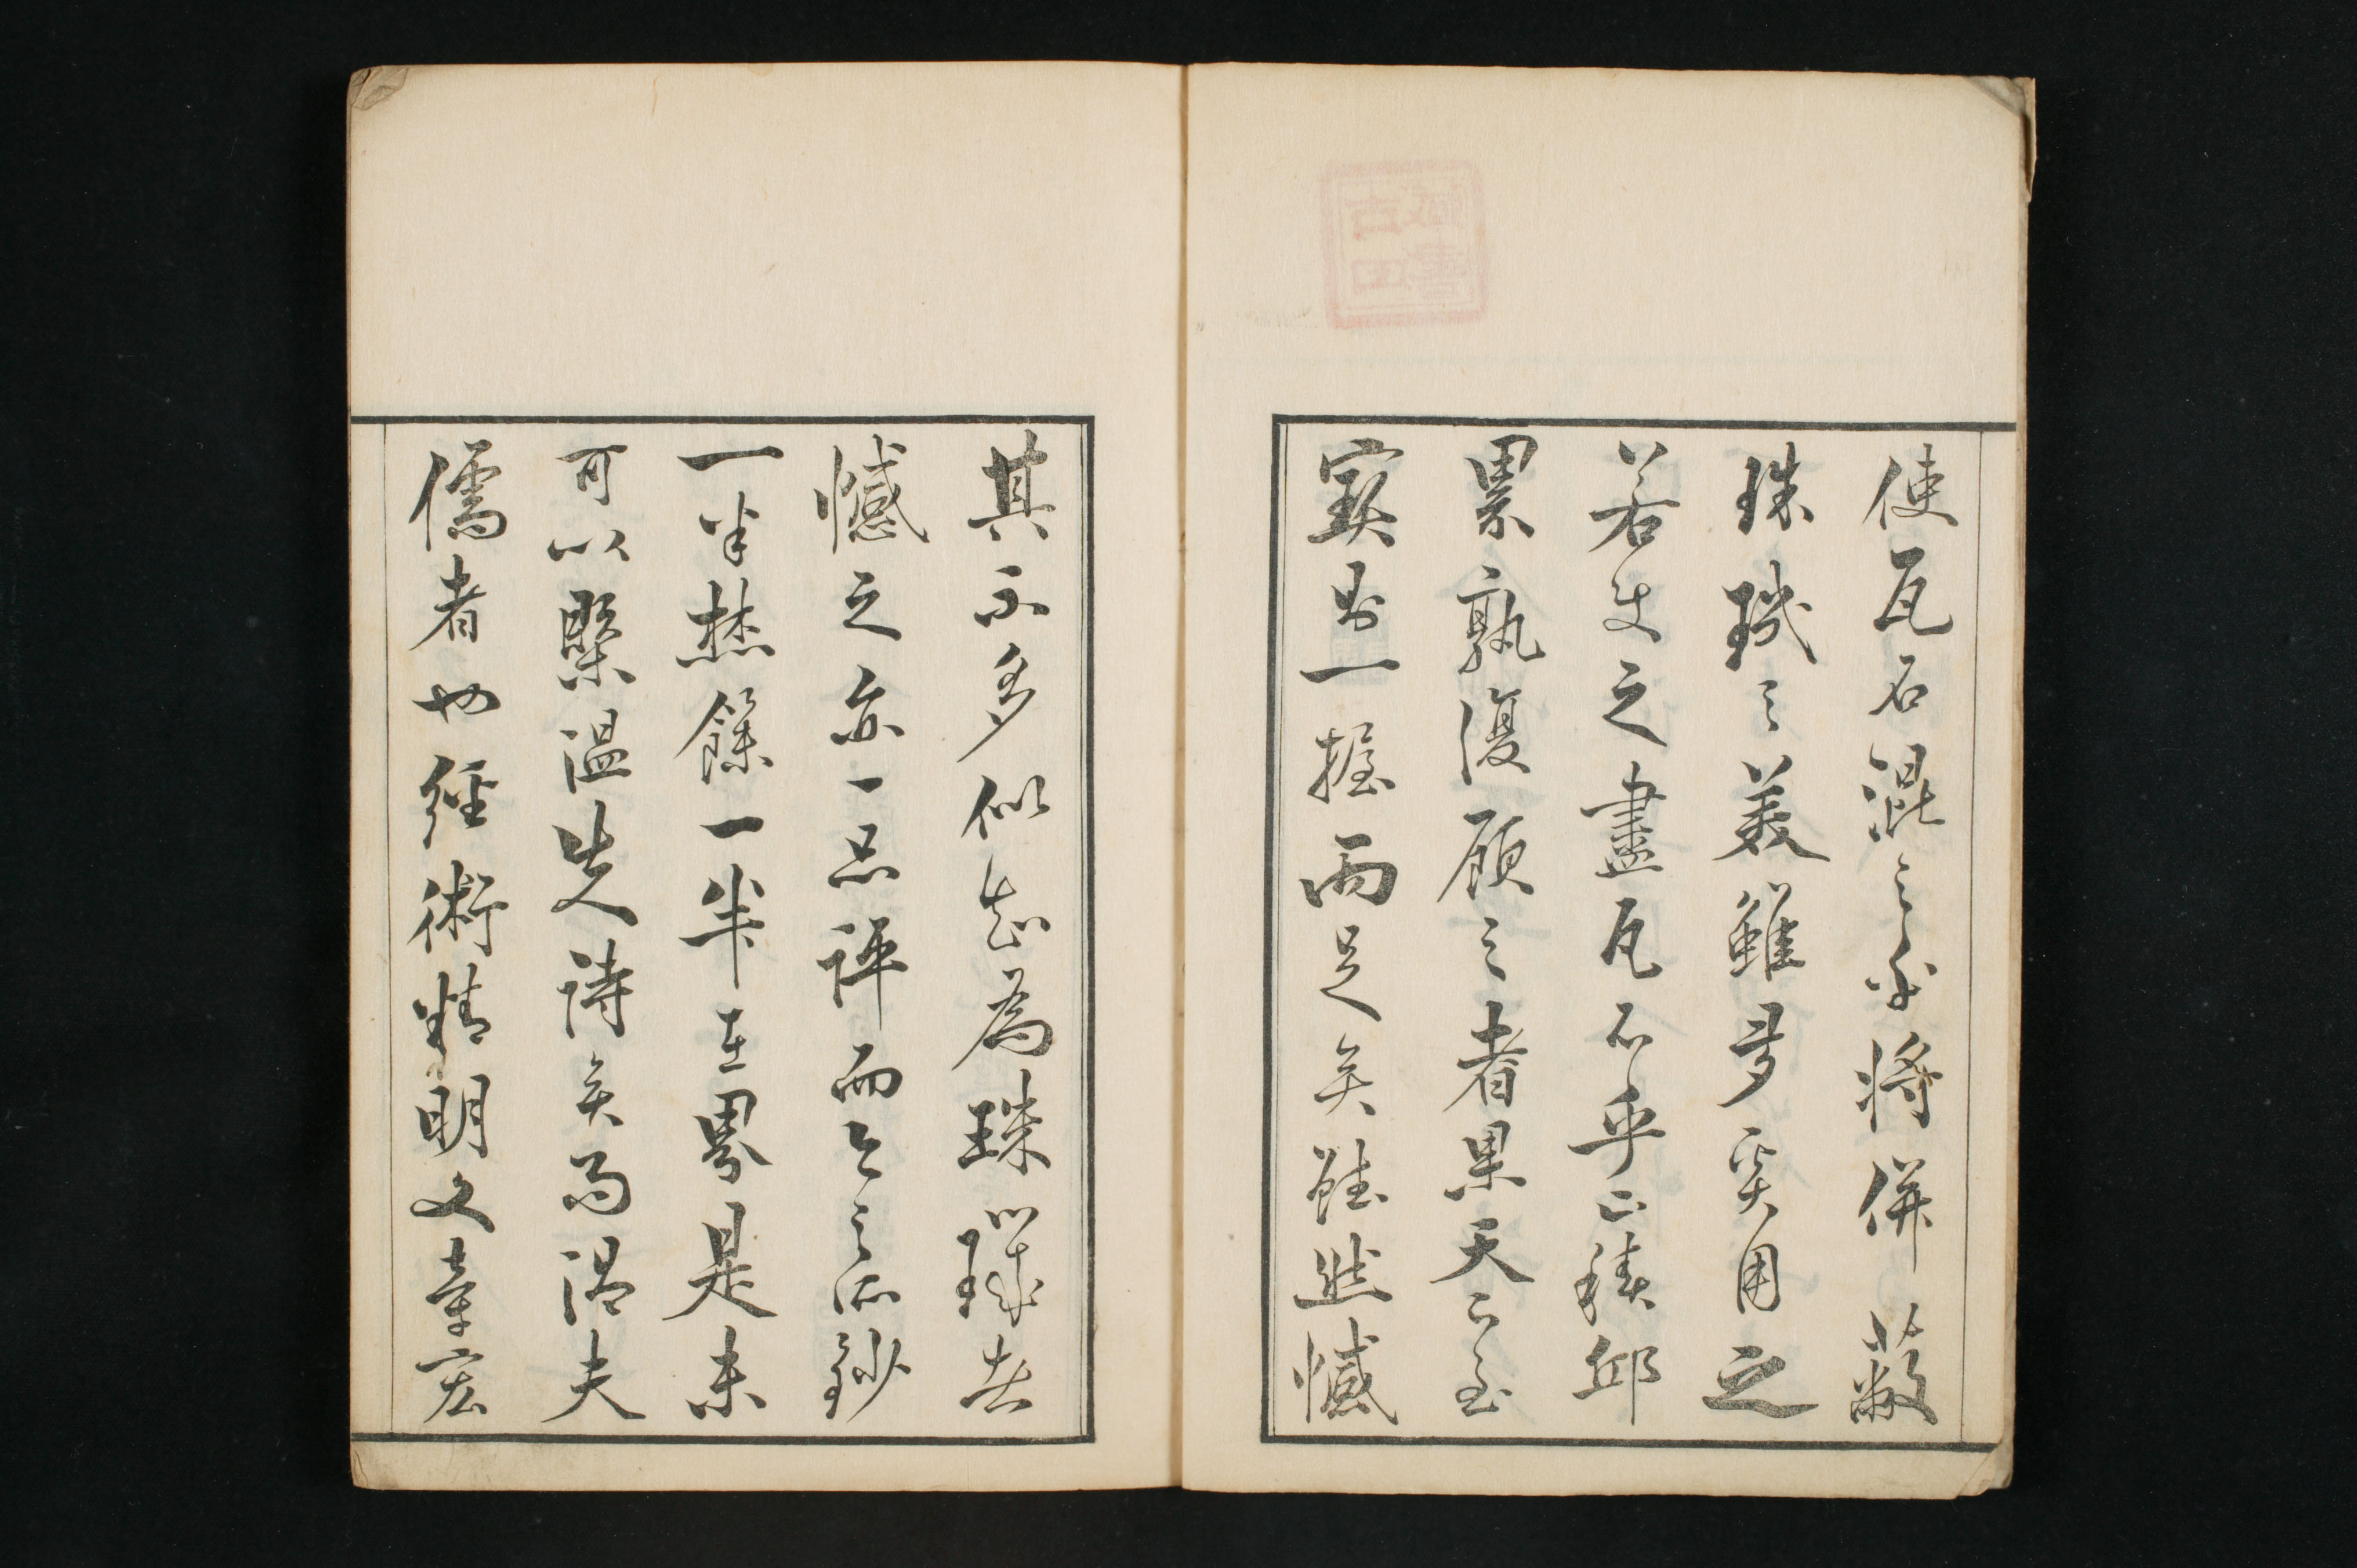 使瓦石混之不將併蔽
珠璣之美雖多奚用之
若失之盡瓦石乎亡積邱
累孰復顧之者果天下至
寶則一握而足矣雖然憾
其不多似知為珠璣者
憾之亦一品評而今之所鈔
一半焚餘一半在累是未
可以槩溫先詩矣為溫夫
儒者也經術精明文章宏